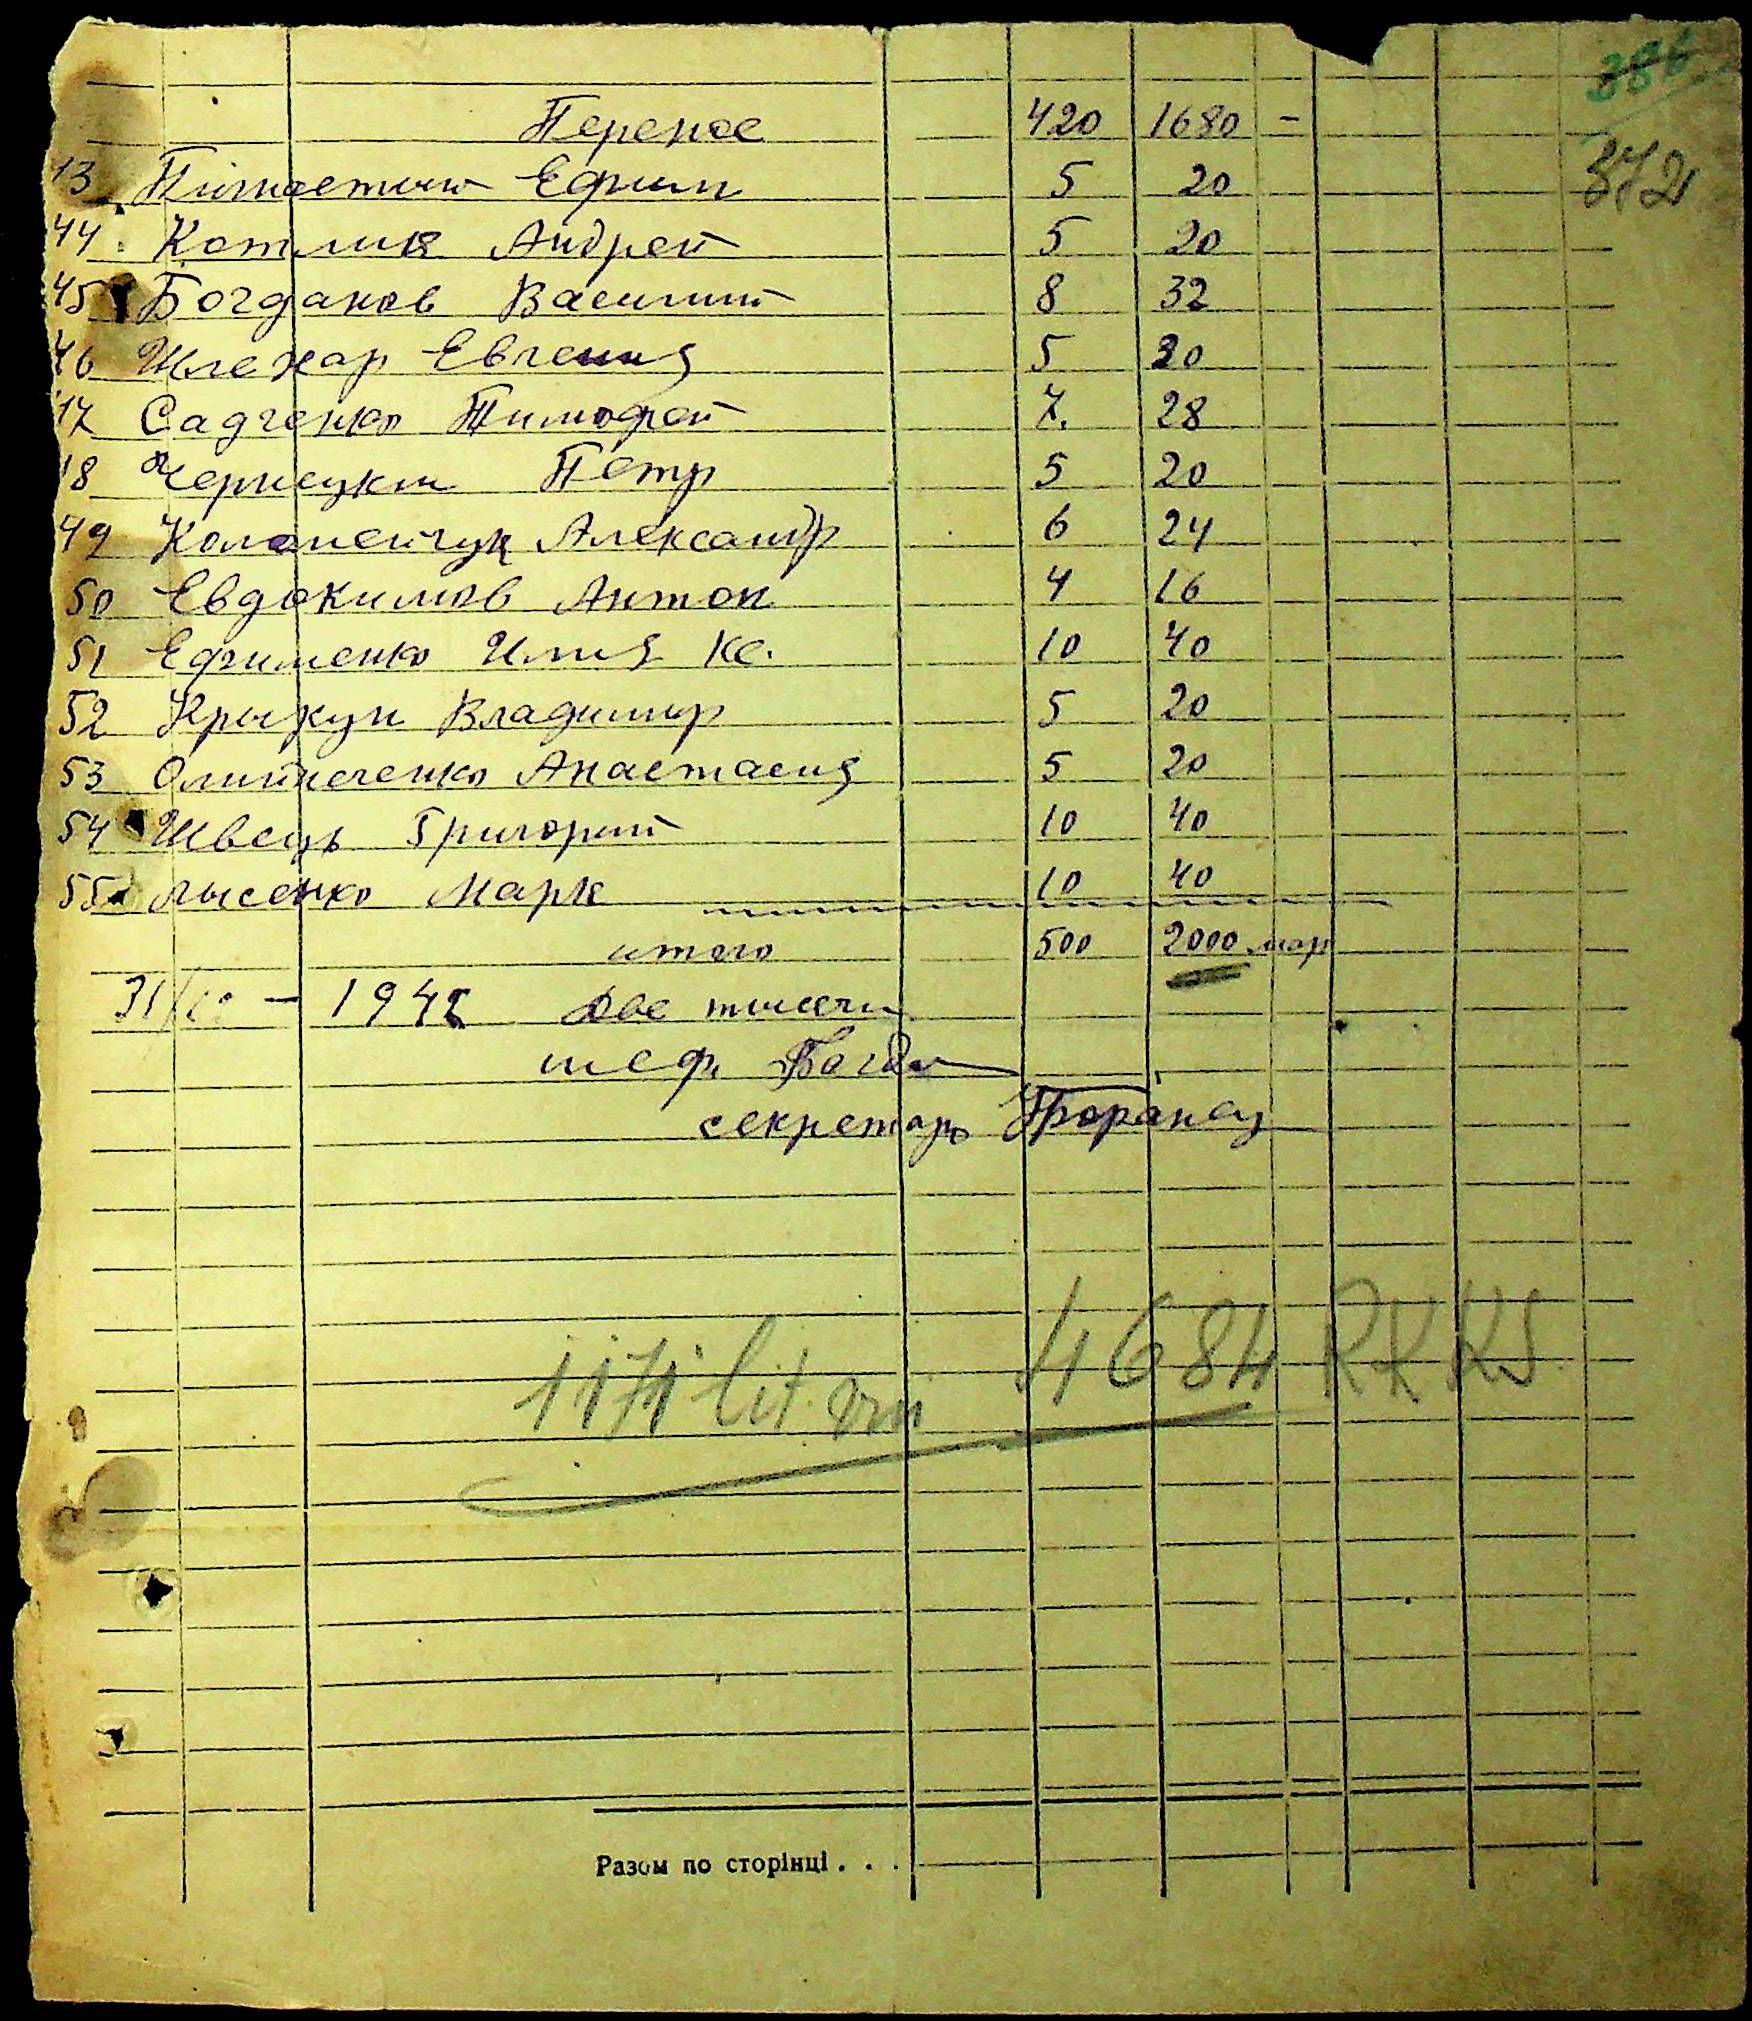 386
Перенос 420 1680 -
372
43 Ефим 5 20
44 Котляр Андрей 5 20
45 Богданов Василий 8 32
46 Шлехар Евгения 5 20
47 Садченко Тимофей 7. 28
48 Чернецкий Петр 5 20
49 Коломейчук Александр 6 24
50 Евдокимов Антон 4 16
51 Ефименко Илия Кс. 10 40
52 Крыкун Владимир 5 20
53 Олийниченко Анастасия 5 20
54 Швець Григорий 10 40
55 Лысенко Марк 10 40
итого 500 2000 мар
31/ - 1942 Две тысячи
шеф. Богдан
секретарь
1171 lit. 4684 RKKS
Разом по сторінці . . .